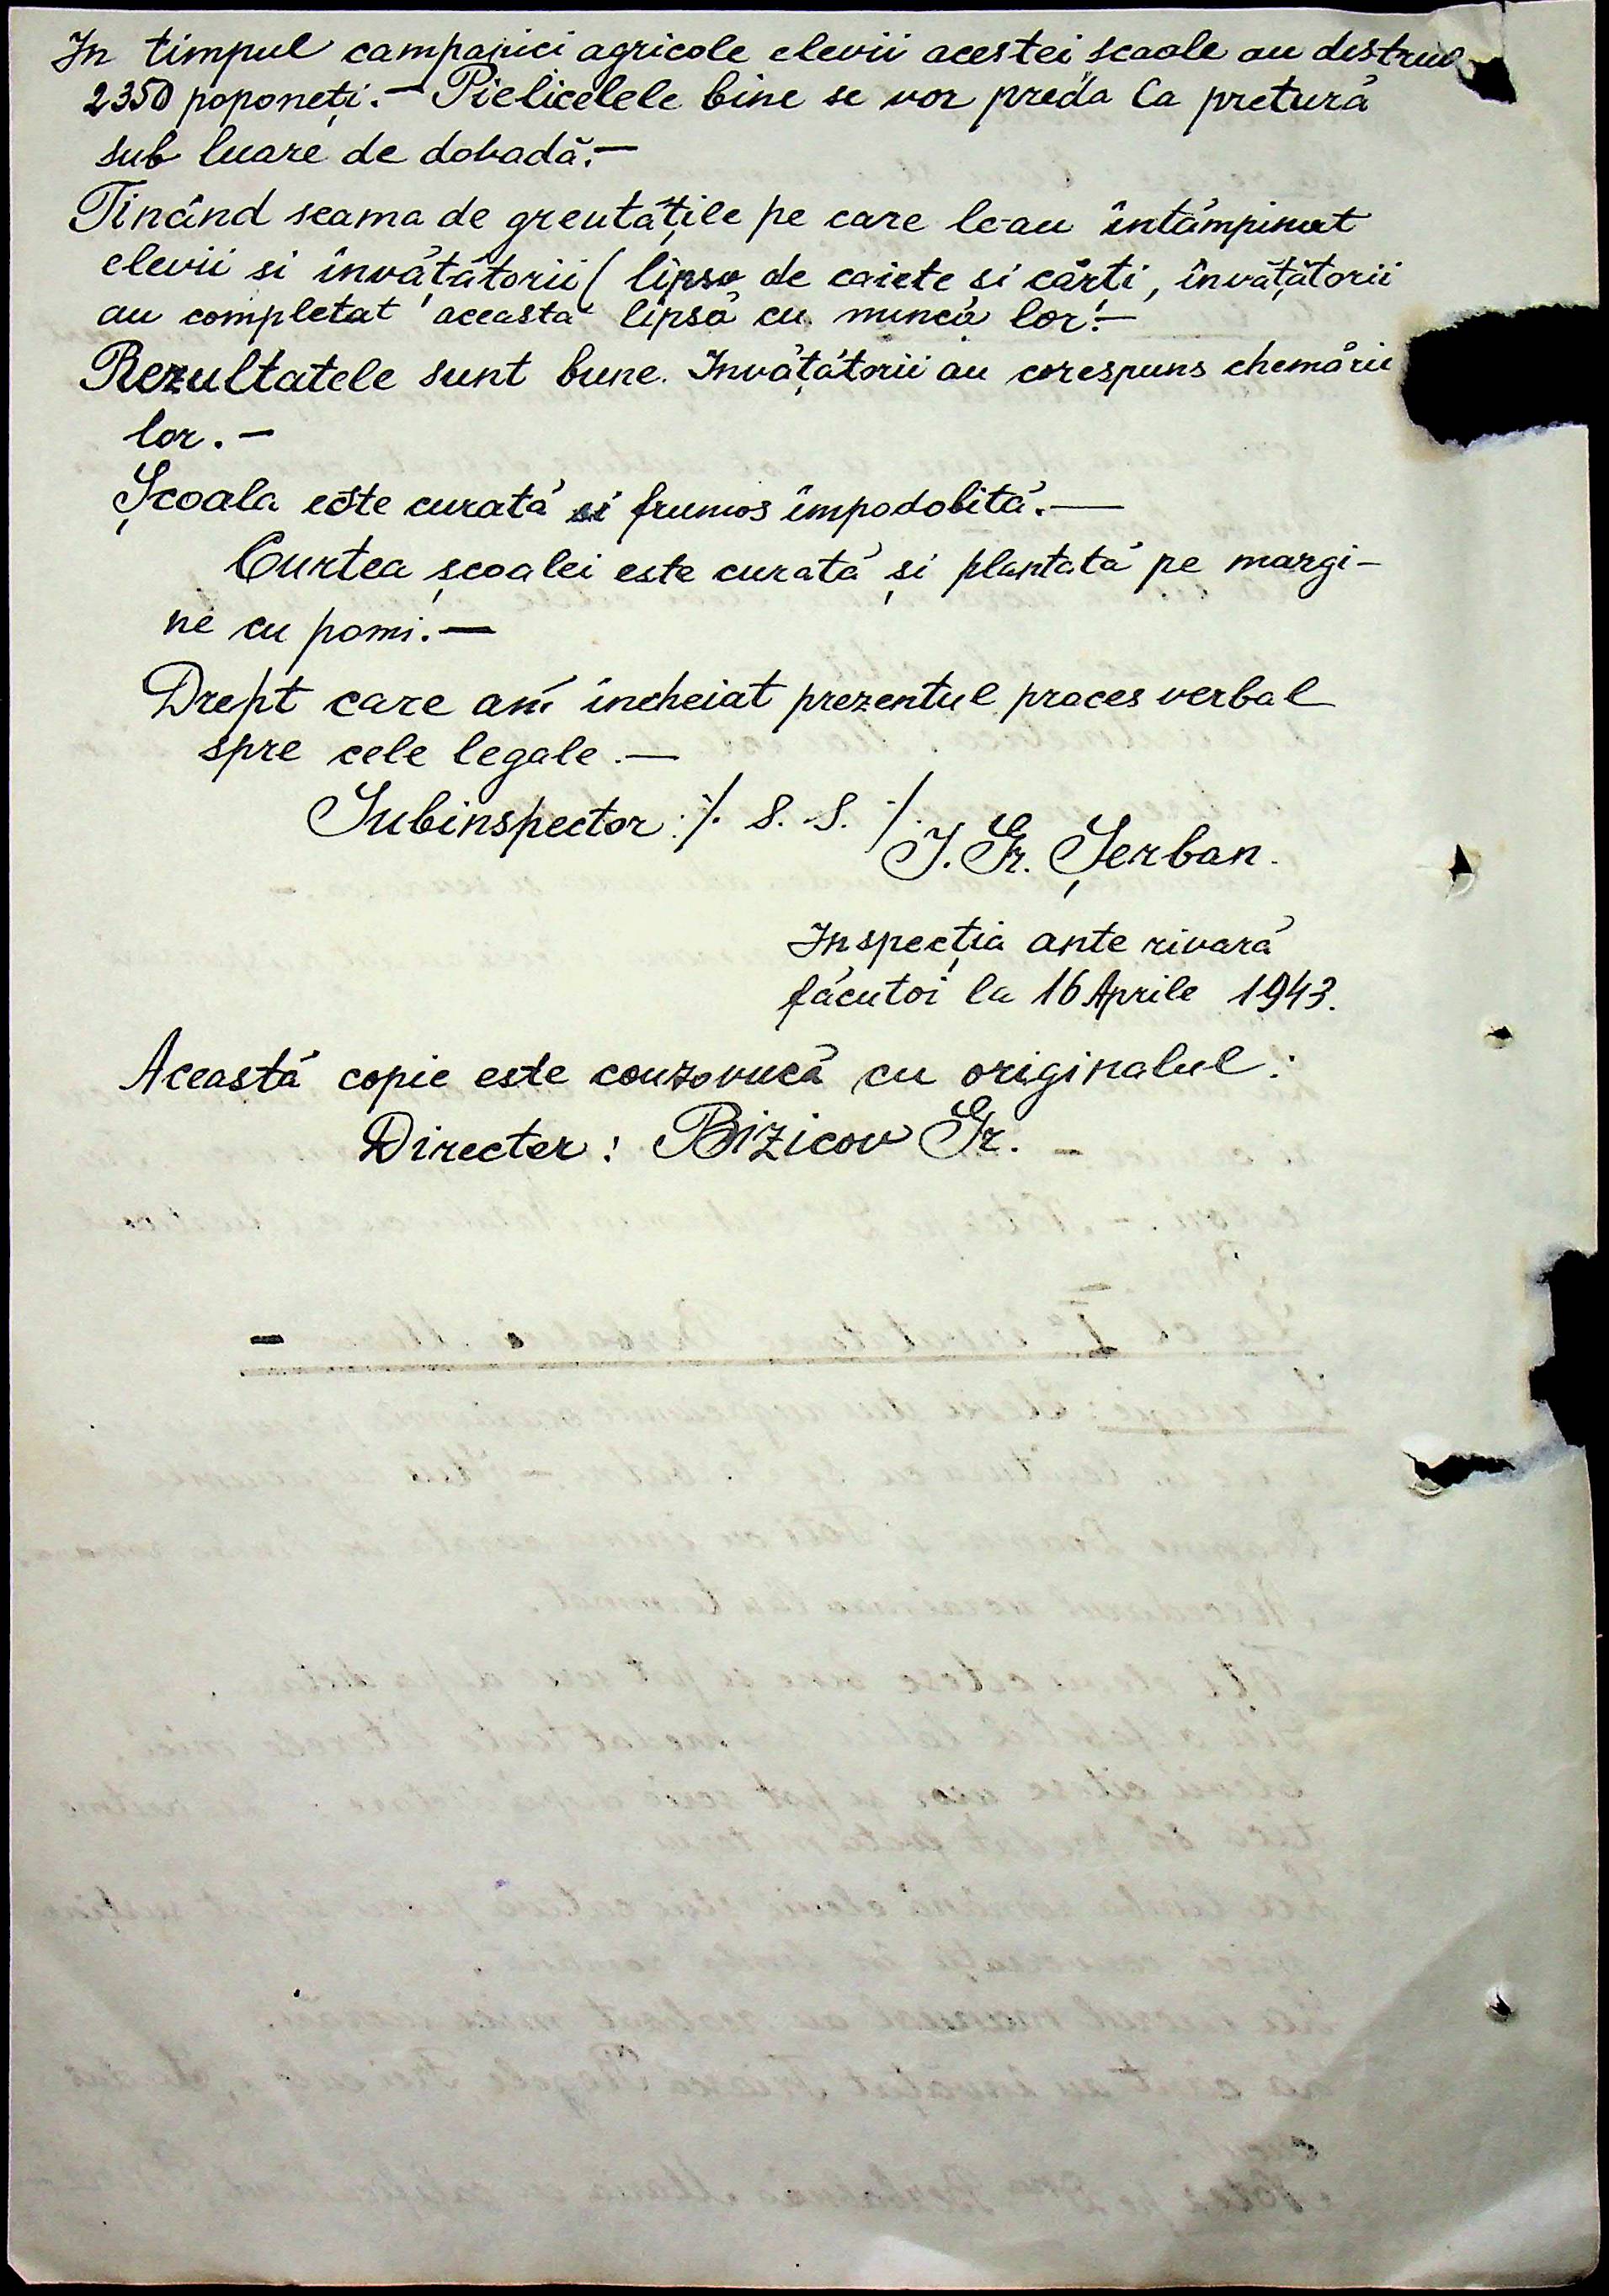 In timpul campaniei agricole elevii acestei scoale au distrus
2350 poponeți.— Pielicelele bine se vor preda la pretură
sub luare de dovadă.—
Tinând seama de greutățile pe care le-au întâmpinat
elevii si învățătorii ( lipsa de caiete si cărți, învățătorii
au completat aceasta lipsă cu munca lor.—
Rezultatele sunt bune. Invățătorii au corespuns chemării
lor.—
Școala este curată si frumos împodobită.—
Curtea școalei este curată și plantată pe margi-
ne cu pomi.—
Drept care am încheiat prezentul proces verbal
spre cele legale.—
Subinspector ./. S. S. ./.
I. Gr. Șerban.
Inspecția ante rivară
făcutoi la 16 Aprile 1943.
Această copie este couzovucă cu originalul:
Directer: Bizicov Gr.